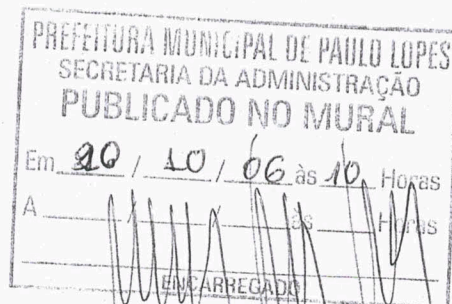 PREFEITURA MUNICIPAL DE PAULO LOPES
SECRETARIA DA ADMINISTRAÇÃO
PUBLICADO NO MURAL
Em 20 / 10 / 06 às 10 Horas
A / / às Horas
ENCARREGADO